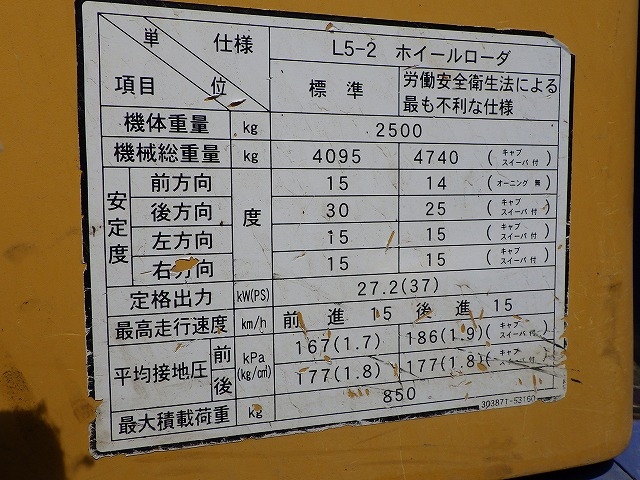 単 仕様 L5-2 ホイールローダ
項目 位 標準 労働安全衛生法による
最も不利な仕様
機体重量 kg 2500
機械総重量 kg 4095 4740 (キャブ スイーパ付)
安定度 前方向 度 15 14 (オーニング 無)
後方向 30 25 (キャブ スイーパ付)
左方向 15 15 (キャブ スイーパ付)
右方向 15 15 (キャブ スイーパ付)
定格出力 kW(PS) 27.2(37)
最高走行速度 km/h 前進 15 後進 15
平均接地圧 前 kPa (kg/cm) 167(1.7) 186(1.9) (キャブ スイーパ付)
後 177(1.8) 177(1.8) (キャブ スイーパ付)
最大積載荷重 kg 850
303877-53160